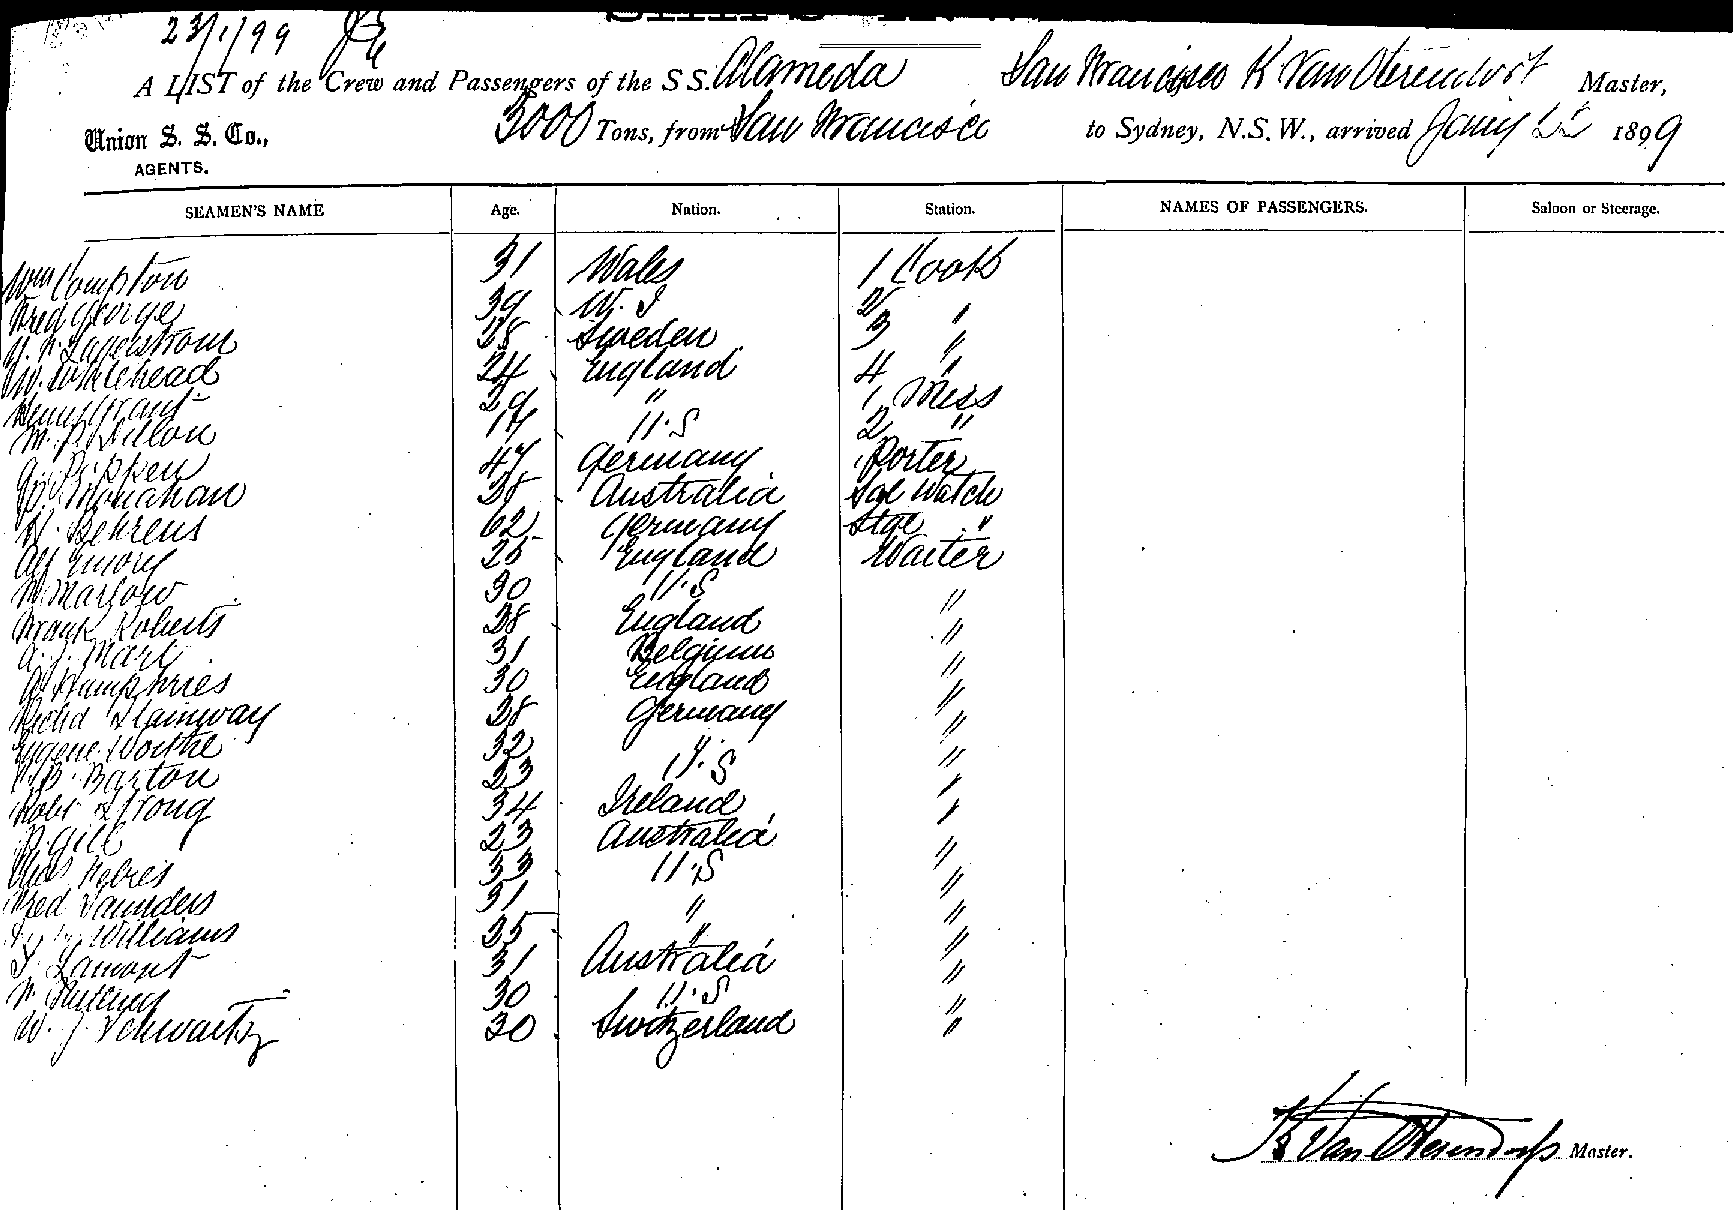 23/1/99
A LIST of the Crew and Passengers of the S S. Alameda San Francisco K Van Oterendorp Master,
Union S. S. Co., 3000 Tons, from San Francisco to Sydney, N.S.W., arrived 1899
AGENTS.
SEAMEN'S NAME Age. Nation. Station. NAMES OF PASSENGERS. Saloon or Steerage.
Wm Compton 31 Wales 1 Cook
Fred George 39 W. I 2 "
Lagerstrom 28 Sweden 3 "
W. Whitehead 24 England 4 "
Henry Grant 29 " 1 Mess
M. P. Dillon 17 U.S 2 "
Pipken 47 Germany Porter
Monahan 38 Australia Sal Watch
H. Behrens 62 Germany Stge "
Alf Emory 25 England Waiter
W. Marlow 30 U.S "
Frank Roberts 38 England "
A. J. Marc 31 Belgium "
Humphries 30 England "
Richd Stainway 28 Germany "
Eugene Worthe 32 "
B. Barton 23 U.S "
Robt Strong 34 Ireland "
Gill 23 Australia "
Chas 33 U.S "
Fred Saunders 31 " "
Williams 25 " "
Lamont 31 Australia "
30 U.S "
W. J Schwartz 30 Switzerland "
K Van Oterendorp Master.